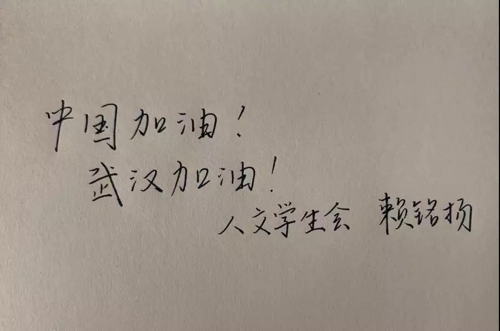 中国加油！
武汉加油！
人文学生会 赖铭扬